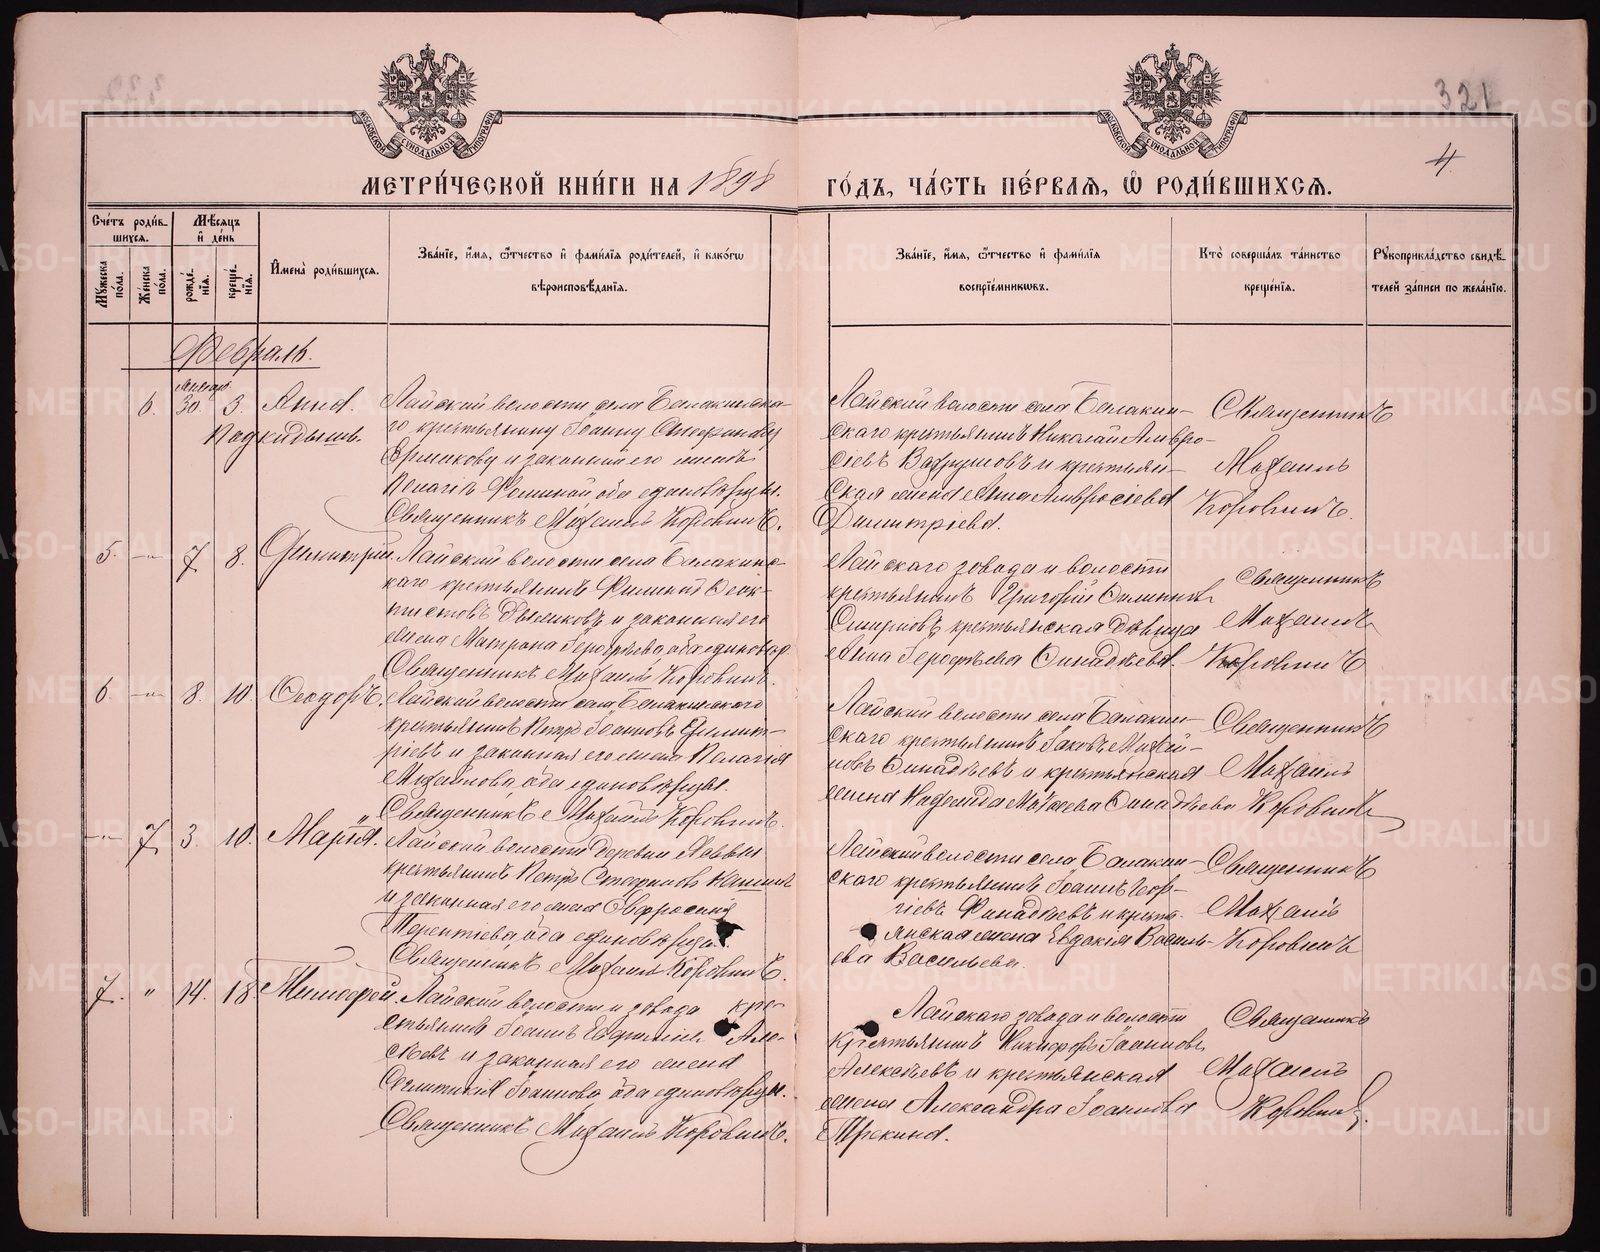 321
4
МЕТРИЧЕСКОЙ КНИГИ НА 1898 ГОДЪ, ЧАСТЬ ПЕРВАЯ, Ѡ РОДИВШИХСЯ.
Счетъ родив-
шихся.
Мѣсяцъ
и день
Мужеска
пола.
Женска
пола.
рожде-
нія.
креще-
нія.
Имена родившихся.
Званіе, имя, ѿчество и фамилія родителей, и какогѡ
вѣроисповѣданія.
Званіе, имя, ѿчество и фамилія
воспріемниковъ.
Кто совершалъ таинство
крещенія.
Рукоприкладство свидѣ-
телей записи по желанію.
Февраль.
6. Января 30. 3. Анна.
Подкидышъ.
Лайской волости села Балакинска-
го крестьянину Іоанну Стефанову
Ермакову и законной его женѣ
Пелагіѣ Фоминой, оба единовѣрцы.
Священникъ Михаилъ Коровинъ.
Лайской волости села Балакин-
скаго крестьянинъ Николай Амвро-
сіевъ Вахрушовъ и крестьян-
ская жена Анна Амвросіева
Димитріева.
Священникъ
Михаилъ
Коровинъ.
5. 7. 8. Димитрій.
Лайской волости села Балакинс-
каго крестьянинъ
и законная его
жена Матрона Герофѣева, оба единовѣр.
Священникъ Михаилъ Коровинъ.
Лайскаго завода и волости
крестьянинъ Григорій
Смирновъ, крестьянская дѣвица
Анна Герофѣева Финадѣева.
Священникъ
Михаилъ
Коровинъ
6. 8. 10. Ѳеодоръ.
Лайской волости села Балакинскаго
крестьянинъ Петръ Іоанновъ Димит-
ріевъ и законная его жена Пелагія
Михайлова, оба единовѣрцы.
Священникъ Михаилъ Коровинъ.
Лайской волости села Балакин-
скаго крестьянинъ Іаковъ Михай-
ловъ Финадѣевъ и крестьянская
жена Надежда Финадѣева
Священникъ
Михаилъ
Коровинъ
7. 3. 10. Марія.
Лайской волости деревни
крестьянинъ Петръ Стефановъ
и законная его жена Евфросинія
Терентіева, оба единовѣрцы.
Священникъ Михаилъ Коровинъ.
Лайской волости села Балакин-
скаго крестьянинъ Іоаннъ Геор-
гіевъ Финадѣевъ и кресть-
янская жена Евдокія Василь-
ева Васильева.
Священникъ
Михаилъ
Коровинъ
7. 14. 18. Тимофей.
Лайской волости и завода кре-
стьянинъ Іоаннъ Алек-
сѣевъ и законная его жена
Іоаннова, оба единовѣрцы.
Священникъ Михаилъ Коровинъ.
Лайскаго завода и волости
крестьянинъ Никифоръ Іоанновъ
Алексѣевъ и крестьянская
жена Александра Іоаннова
Священникъ
Михаилъ
Коровинъ.
METRIKI.GASO-URAL.RU